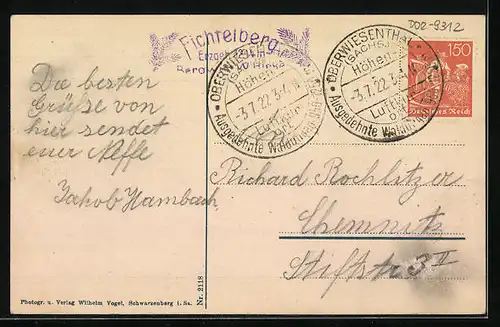 DO2-9312
Fichtelberg
OBERWIESENTHAL
(SACHS.)
Höhen-
-3.7.22.3-4.N
Luftkur-
ort
Ausgedehnte Waldungen
OBERWIESENTHAL
(SACHS.)
Höhen-
-3.7.22.3-4.N
Luftkur-
ort
Ausgedehnte Waldungen
150
Deutsches Reich
Die besten
Grüße von
hier sendet
euer Neffe
Jakob Hambach
Richard Rochlitzer
Chemnitz
Stiftstr. 3 II
Photogr. u. Verlag Wilhelm Vogel, Schwarzenberg i. Sa.
Nr. 2118